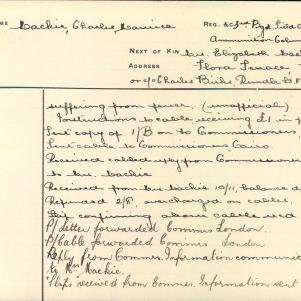 Name Mackie, Charles, Maurice
REG. &c 3rd Bgd. Field
Ammunition Colum
NEXT OF KIN Mrs. Elizabeth Mac
ADDRESS Flora Terrace,
or c/o Charles Birks, Rundle St,
suffering from fever. (unofficial)
Instructions to cable, receiving £1 in p
Sent copy of 1/B on to Commissioners,
Sent cable to Commissioners Cairo.
Received cabled reply from Commissioner
to Mrs. Mackie
Received from Mrs Mackie 10/11, balance d
Refunded 2/8, overcharged on cables.
Slip confirming above cable recd
P/Letter forwarded Commrs London.
P/Cable forwarded Commrs London.
Reply from Commr. Information communic
to Mrs. Mackie.
Slips received from Commr. Information sent